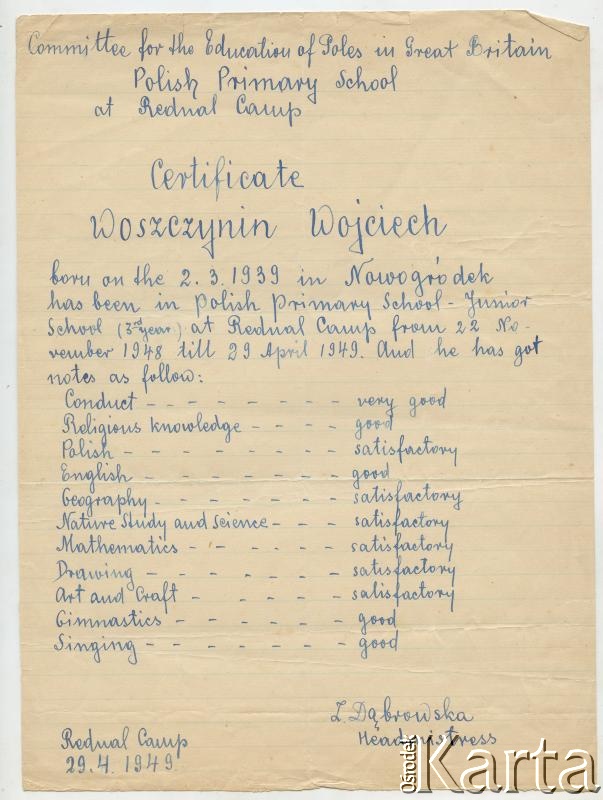 Committee for the Education of Poles in Great Britain
Polish Primary School
at Rednal Camp
Certificate
Woszczynin Wojciech
born on the 2.3.1939 in Nowogródek
has been in Polish Primary School - Junior
School (3rd year) at Rednal Camp from 22 No-
vember 1948 till 29 April 1949. And he has got
notes as follow:
Conduct - - - - - - - - very good
Religious knowledge - - - - good
Polish - - - - - - - - satisfactory
English - - - - - - - good
Geography - - - - - - - satisfactory
Nature Study and Science - - - satisfactory
Mathematics - - - - - - satisfactory
Drawing - - - - - - - satisfactory
Art and Craft - - - - - - satisfactory
Gimnastics - - - - - - good
Singing - - - - - - - good
Z. Dąbrowska
Headmistress
Rednal Camp
29.4.1949.
Ośrodek
Karta